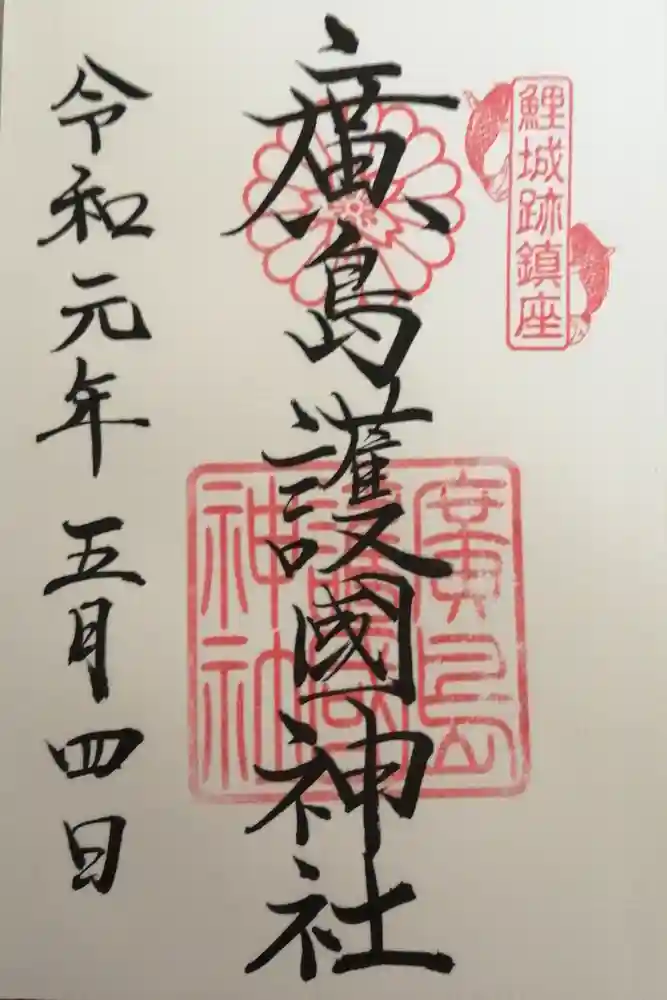 鯉城跡鎮座
廣島護國神社
廣島
護國
神社
令和元年五月四日